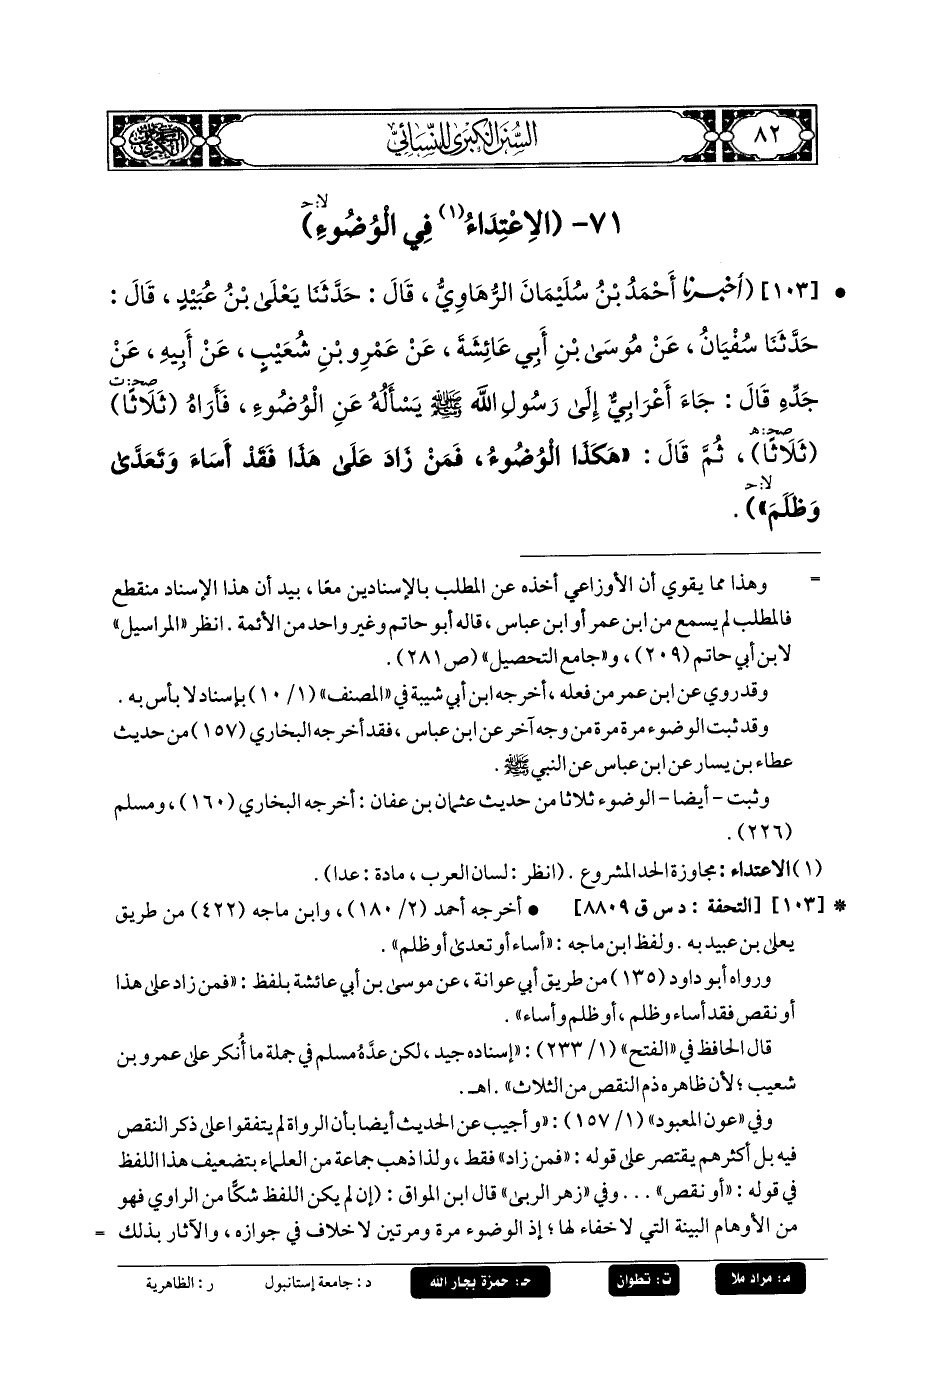 ٨٢
السُّنَنُ الكُبْرَىٰ لِلنَّسَائِيِّ
٧١- (الِاعْتِدَاءُ(١) فِي الْوُضُوءِ)
لا: حـ
• [١٠٣] (أَخْبَرَنَا أَحْمَدُ بْنُ سُلَيْمَانَ الرُّهَاوِيُّ ، قَالَ : حَدَّثَنَا يَعْلَىٰ بْنُ عُبَيْدٍ ، قَالَ :
حَدَّثَنَا سُفْيَانُ ، عَنْ مُوسَىٰ بْنِ أَبِي عَائِشَةَ ، عَنْ عَمْرِو بْنِ شُعَيْبٍ ، عَنْ أَبِيهِ ، عَنْ
جَدِّهِ قَالَ : جَاءَ أَعْرَابِيٌّ إِلَىٰ رَسُولِ اللَّه ﷺ يَسْأَلُهُ عَنِ الْوُضُوءِ ، فَأَرَاهُ (ثَلَاثًا)
صحـ: ت
(ثَلَاثًا) ، ثُمَّ قَالَ : «هَكَذَا الْوُضُوءُ ، فَمَنْ زَادَ عَلَىٰ هَذَا فَقَدْ أَسَاءَ وَتَعَدَّىٰ
صحـ: هـ
وَظَلَمَ») .
لا: حـ
= وهذا مما يقوي أن الأوزاعي أخذه عن المطلب بالإسنادين معًا ، بيد أن هذا الإسناد منقطع
فالمطلب لم يسمع من ابن عمر أو ابن عباس ، قاله أبو حاتم وغير واحد من الأئمة . انظر «المراسيل»
لابن أبي حاتم (٢٠٩) ، و«جامع التحصيل» (ص ٢٨١) .
وقد روي عن ابن عمر من فعله ، أخرجه ابن أبي شيبة في «المصنف» (١/ ١٠) بإسناد لا بأس به .
وقد ثبت الوضوء مرة مرة من وجه آخر عن ابن عباس ، فقد أخرجه البخاري (١٥٧) من حديث
عطاء بن يسار عن ابن عباس عن النبي ﷺ .
وثبت - أيضا - الوضوء ثلاثا من حديث عثمان بن عفان : أخرجه البخاري (١٦٠) ، ومسلم
(٢٢٦) .
(١) الاعتداء : مجاوزة الحد المشروع . (انظر : لسان العرب ، مادة : عدا) .
* [١٠٣] [التحفة : د س ق ٨٨٠٩] • أخرجه أحمد (٢/ ١٨٠) ، وابن ماجه (٤٢٢) من طريق
يعلى بن عبيد به . ولفظ ابن ماجه : «أساء أو تعدىٰ أو ظلم» .
ورواه أبو داود (١٣٥) من طريق أبي عوانة ، عن موسى بن أبي عائشة بلفظ : «فمن زاد على هذا
أو نقص فقد أساء وظلم ، أو ظلم وأساء» .
قال الحافظ في «الفتح» (١/ ٢٣٣) : «إسناده جيد ، لكن عدَّهُ مسلم في جملة ما أُنكر على عمرو بن
شعيب ؛ لأن ظاهره ذم النقص من الثلاث» . اهـ .
وفي «عون المعبود» (١/ ١٥٧) : «وأجيب عن الحديث أيضا بأن الرواة لم يتفقوا على ذكر النقص
فيه بل أكثرهم يقتصر على قوله : «فمن زاد» فقط ، ولذا ذهب جماعة من العلماء بتضعيف هذا اللفظ
في قوله : «أو نقص» . . . وفي «زهر الربىٰ» قال ابن المواق : (إن لم يكن اللفظ شكًّا من الراوي فهو
من الأوهام البينة التي لا خفاء لها ؛ إذ الوضوء مرة ومرتين لا خلاف في جوازه ، والآثار بذلك =
مـ: مراد ملا ت: تطوان حـ: حمزة بجار الله د: جامعة إستانبول ر: الظاهرية